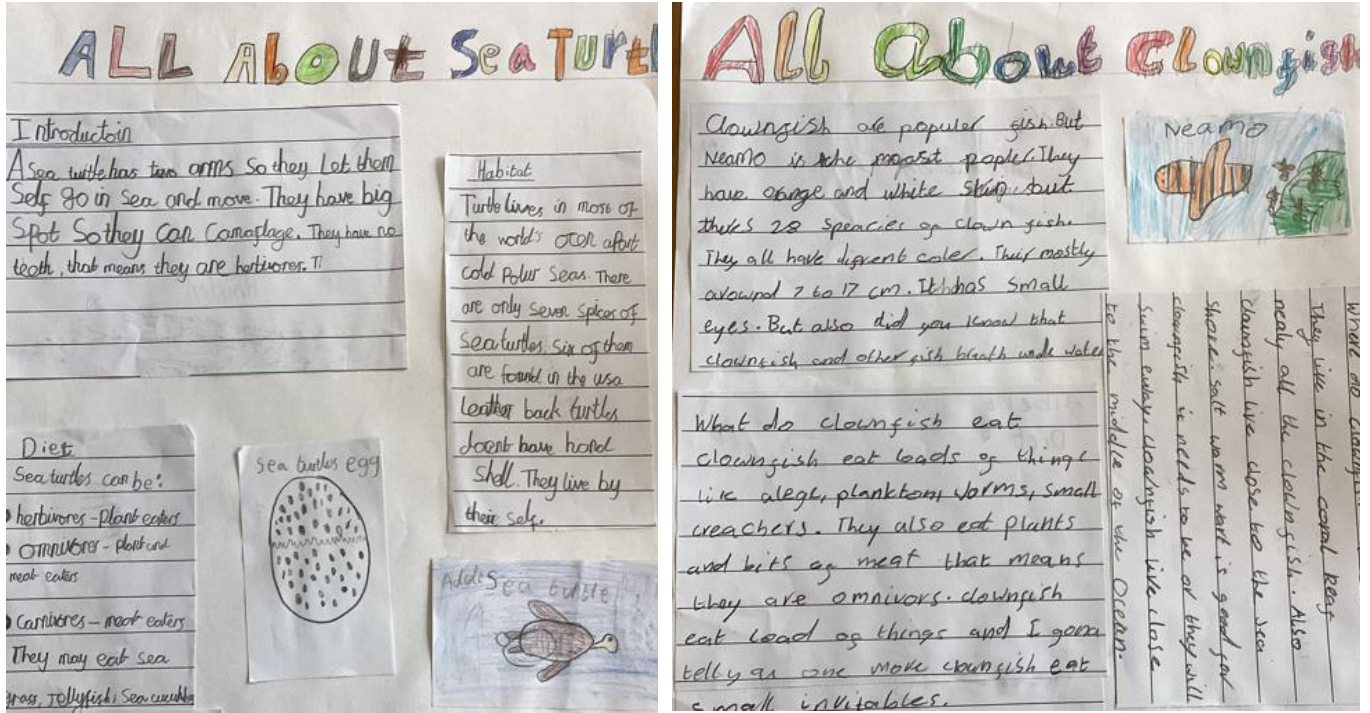 ALL About Sea Turtl
Introductoin
A Sea turtle has two arms So they Let them
Self go in Sea and move. They have big
Spot So they can Camaflage. They have no
teath, that means they are herbivores. T
Habitat
Turtle Lives in most of
the world's ocen afart
cold Polur Seas. There
are only Seven Spices of
Sea turtles. Six of them
are found in the usa
Leather back turtles
doent have hard
Shell. They live by
their self.
Diet
Sea turtles can be:
herbivores - plant eaters
Omnivores - plant and
meat eaters
Carnivores - meat eaters
They may eat sea
grass, Jellyfish, Sea cucumbe
Sea turtles egg
Adult Sea turtle
All About Clownfish
Clownfish are populer fish. But
Neamo is the moast popler. They
have orange and white Skin. but
there's 28 Speacies of clown fish.
They all have difrent coler. Their mostly
arownd 7 to 17 cm. It has Small
eyes. But also did you know that
clownfish and other fish breath unde water
Neamo
What do clownfish eat
clownfish eat loads of things
like alege, plankton, worms, small
creachers. They also eat plants
and bits of meat that means
they are omnivors. clownfish
eat load of things and I gona
tell you one more clownfish eat
small invitables.
Where do clownfis
They live in the coral Reef
nealy all the clownfish. Also
clownfish live close too the sea
Shore. Salt warm is good for
clownfish it needs to be or they will
Swim away. clownfish live close
to the middle of the Ocean.